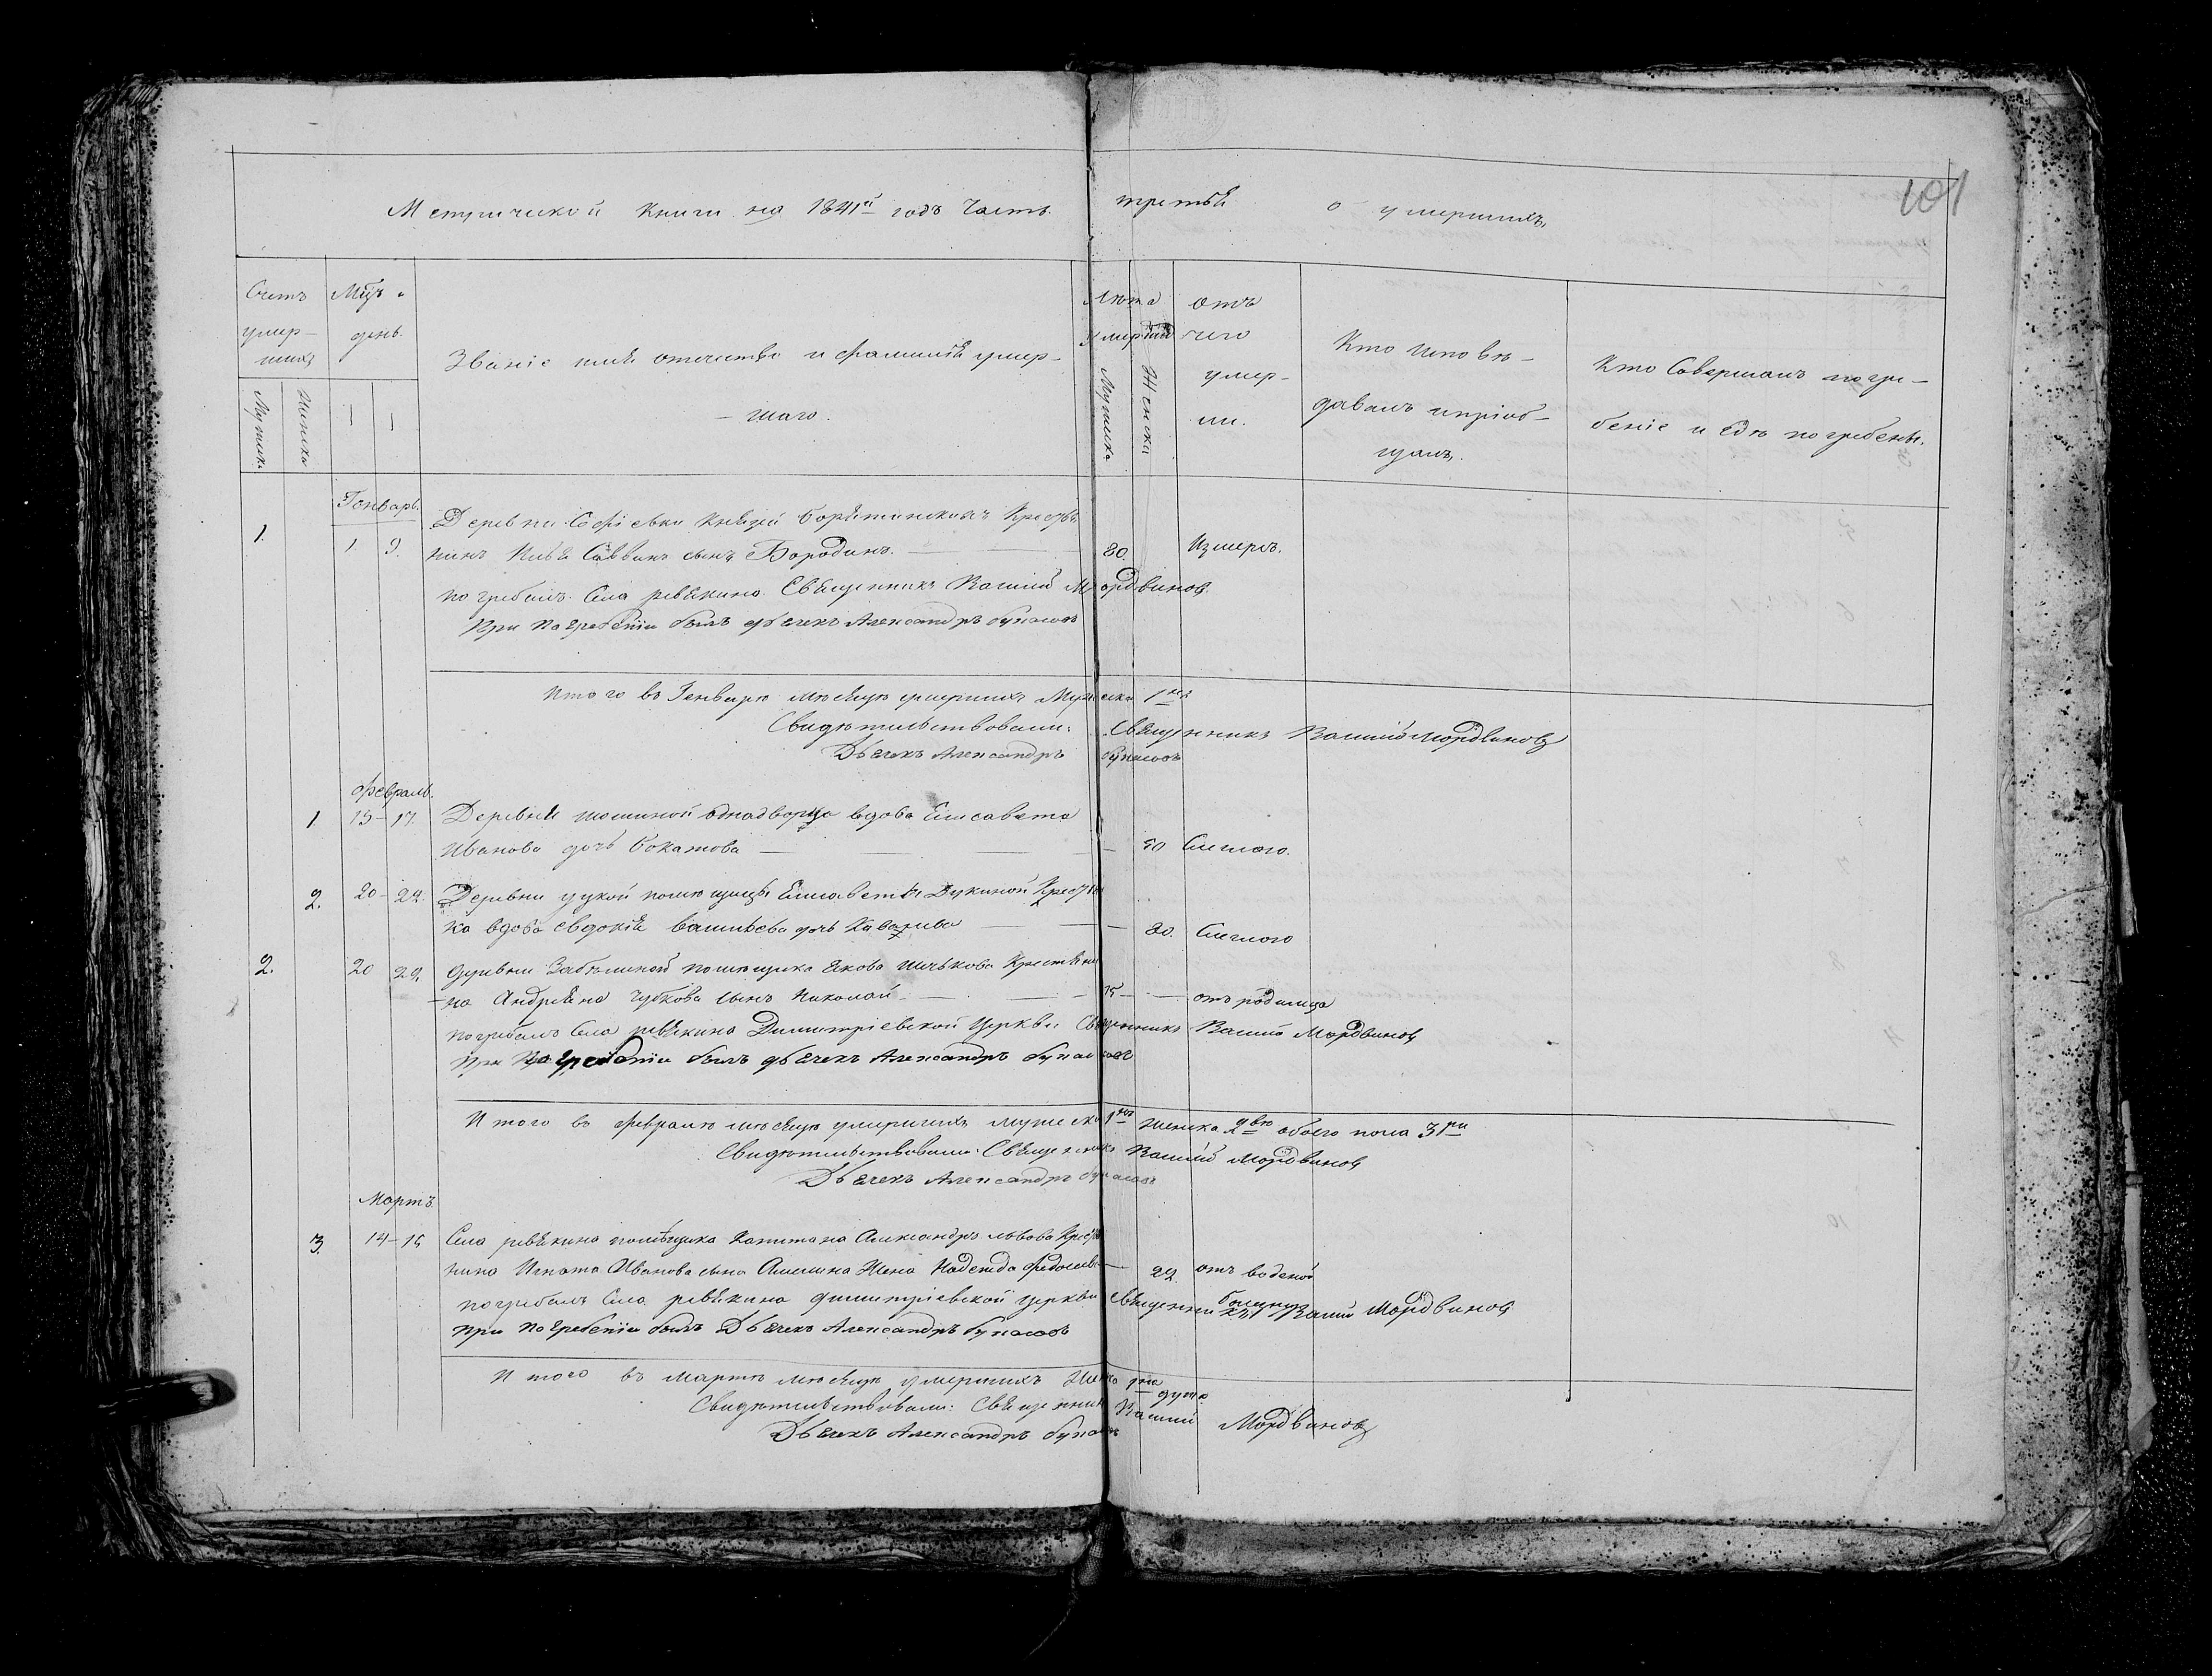 101
Метрической книги на 1841й годъ Часть третья о умершихъ,
Счетъ умер-шихъ
Мужеска
Женска
Мцъ и день.
Званіе имя отечество и фамилія умер-
- шаго.
Лѣта умершихъ
Мужеска
Женска
Отъ чего умер-ли.
Кто исповѣ-
давалъ и пріоб-
щалъ.
Кто Совершалъ погре-
беніе и гдѣ погребены.
Генварь.
1. 1 9. Деревни Софіевки Князей Борятинскихъ Кресть
нинъ Савинъ сынъ Бородинъ. 80. Измеръ.
погребалъ Села ревякина Священникъ Василій Мордвиновъ
При погребеніи былъ дьячекъ Александръ
Итого въ Генваре месяце умершихъ Мужеска 1нъ
Свидѣтельствовали: Священникъ Василій Мордвиновъ
Дьячекъ Александръ
Февраль.
1 15-17. Деревни однодворца вдова Елисавета
Иванова дочь - 90 Слеглого.
2. 20-22. Деревни помещицы Елисаветы Крестьян
ка вдова Евдокія васильева дочь - 80. Слеглого
2. 20 22 деревни помещика Якова Крестьяни
-на Андреяна сынъ Николай - 15 - отъ родимца
погребалъ Села ревякина Димитріевской Церкви Священникъ Василій Мордвиновъ
При погребеніи былъ дьячекъ Александръ
Итого въ феврале месяце умершихъ мужеска 1нъ женска две обоего пола 3ри
Свидѣтельствовали: Священникъ Василій Мордвиновъ
Дьячекъ Александръ
Мартъ
3 14-15 Села ревякина помѣщика Капитана Александра львова Крестья
нина Игната Иванова сына жена Надежда - 22. отъ водяной болезни
погребалъ Села ревякина димитріевской церкви священникъ Василій Мордвиновъ
При погребеніи былъ Дьячекъ Александръ
Итого въ марте месяце умершихъ Женска 1на душа
Свидѣтельствовали: Священникъ Василій Мордвиновъ
Дьячекъ Александръ